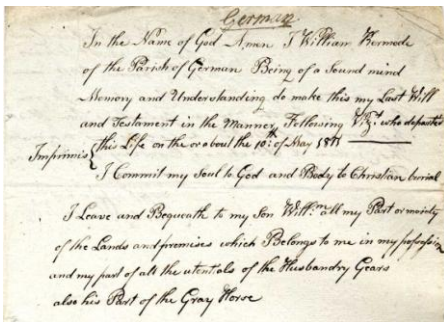 German
In the Name of God Amen I William Kermode
of the Parish of German Being of a Sound mind
Memory and Understanding do make this my Last Will
and Testament in the Manner Following Vizt. who departed
this Life on the or about the 10th of May 1811
Imprimis
I Commit my Soul to God and Body to Christian burial
I Leave and Bequeath to my Son Willm. all my Part or moiety
of the Lands and premises which Belongs to me in my possession
and my part of all the utentals of the Husbandry Gears
also his Part of the Gray Horse